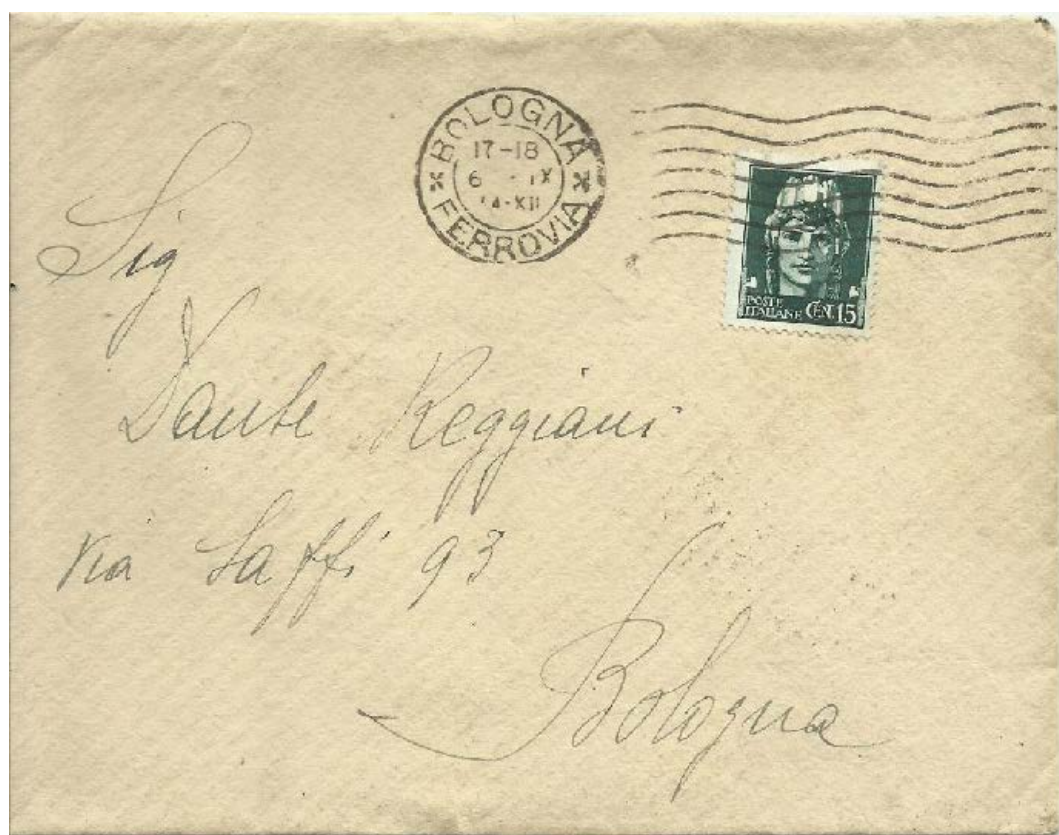 BOLOGNA
17-18
FERROVIA
POSTE
ITALIANE CEN. 15
Sig
Dante Reggiani
Via Saffi 93
Bologna